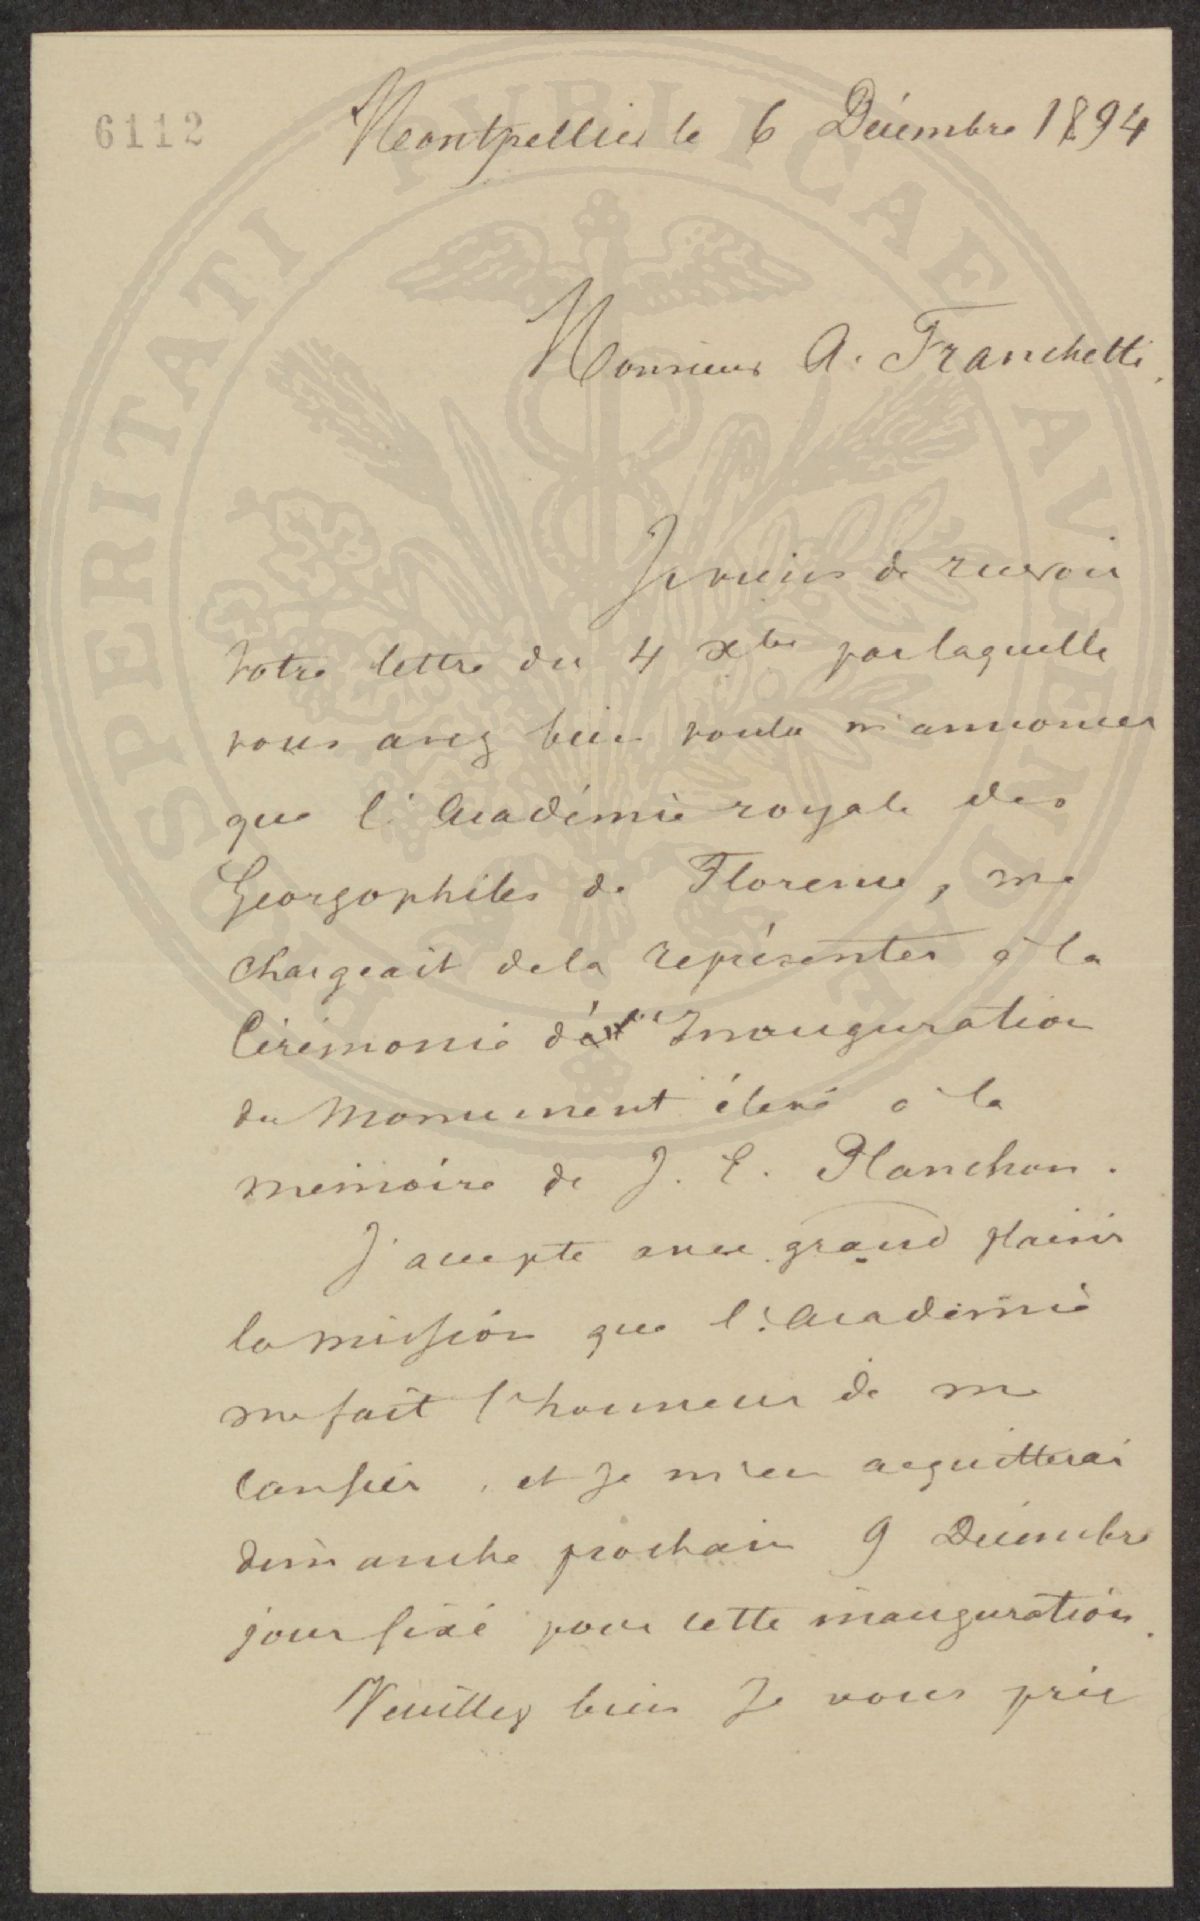 6112
Montpellier le 6 Décembre 1894
Monsieur A. Franchetti.
Je viens de recevoir
votre lettre du 4 Xbre par laquelle
vous avez bien voulu m'annoncer
que l'Académie royale des
Georgophiles de Florence, me
chargeait de la représenter à la
Cérémonie d' Inauguration
du Monument élevé à la
mémoire de J. E. Planchon.
J'accepte avec grand plaisir
la mission que l'Académie
me fait l'honneur de me
confier, et je m'en acquitterai
dimanche prochain 9 Décembre
jour fixé pour cette inauguration.
Veuillez bien je vous prie
PROSPERITATI PVBLICAE AVGENDAE